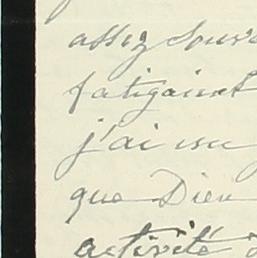 assez souv
fatigaient
j'ai eu
que Dieu
activité